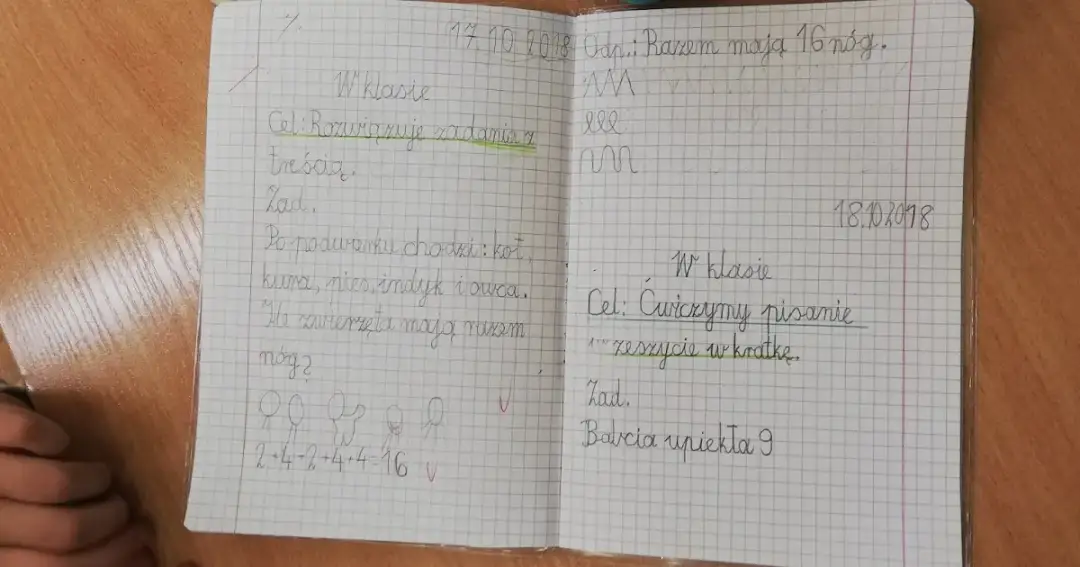 17.10.2018
W klasie
Cel: Rozwiązuje zadania z
treścią.
Zad.
Po podwórku chodzi: kot,
kura, pies, indyk i owca.
Ile zwierzęta mają razem
nóg?
2+4+2+4+4=16
Odp.: Razem mają 16 nóg.
18.10.2018
W klasie
Cel: Ćwiczymy pisanie
zeszycie w kratkę.
Zad.
Babcia upiekła 9